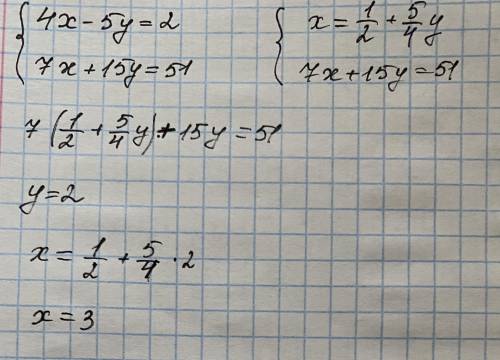 4x - 5y = 2
7x + 15y = 51
x = 1/2 + 5/4 y
7x + 15y = 51
7(1/2 + 5/4 y) + 15y = 51
y = 2
x = 1/2 + 5/4 · 2
x = 3